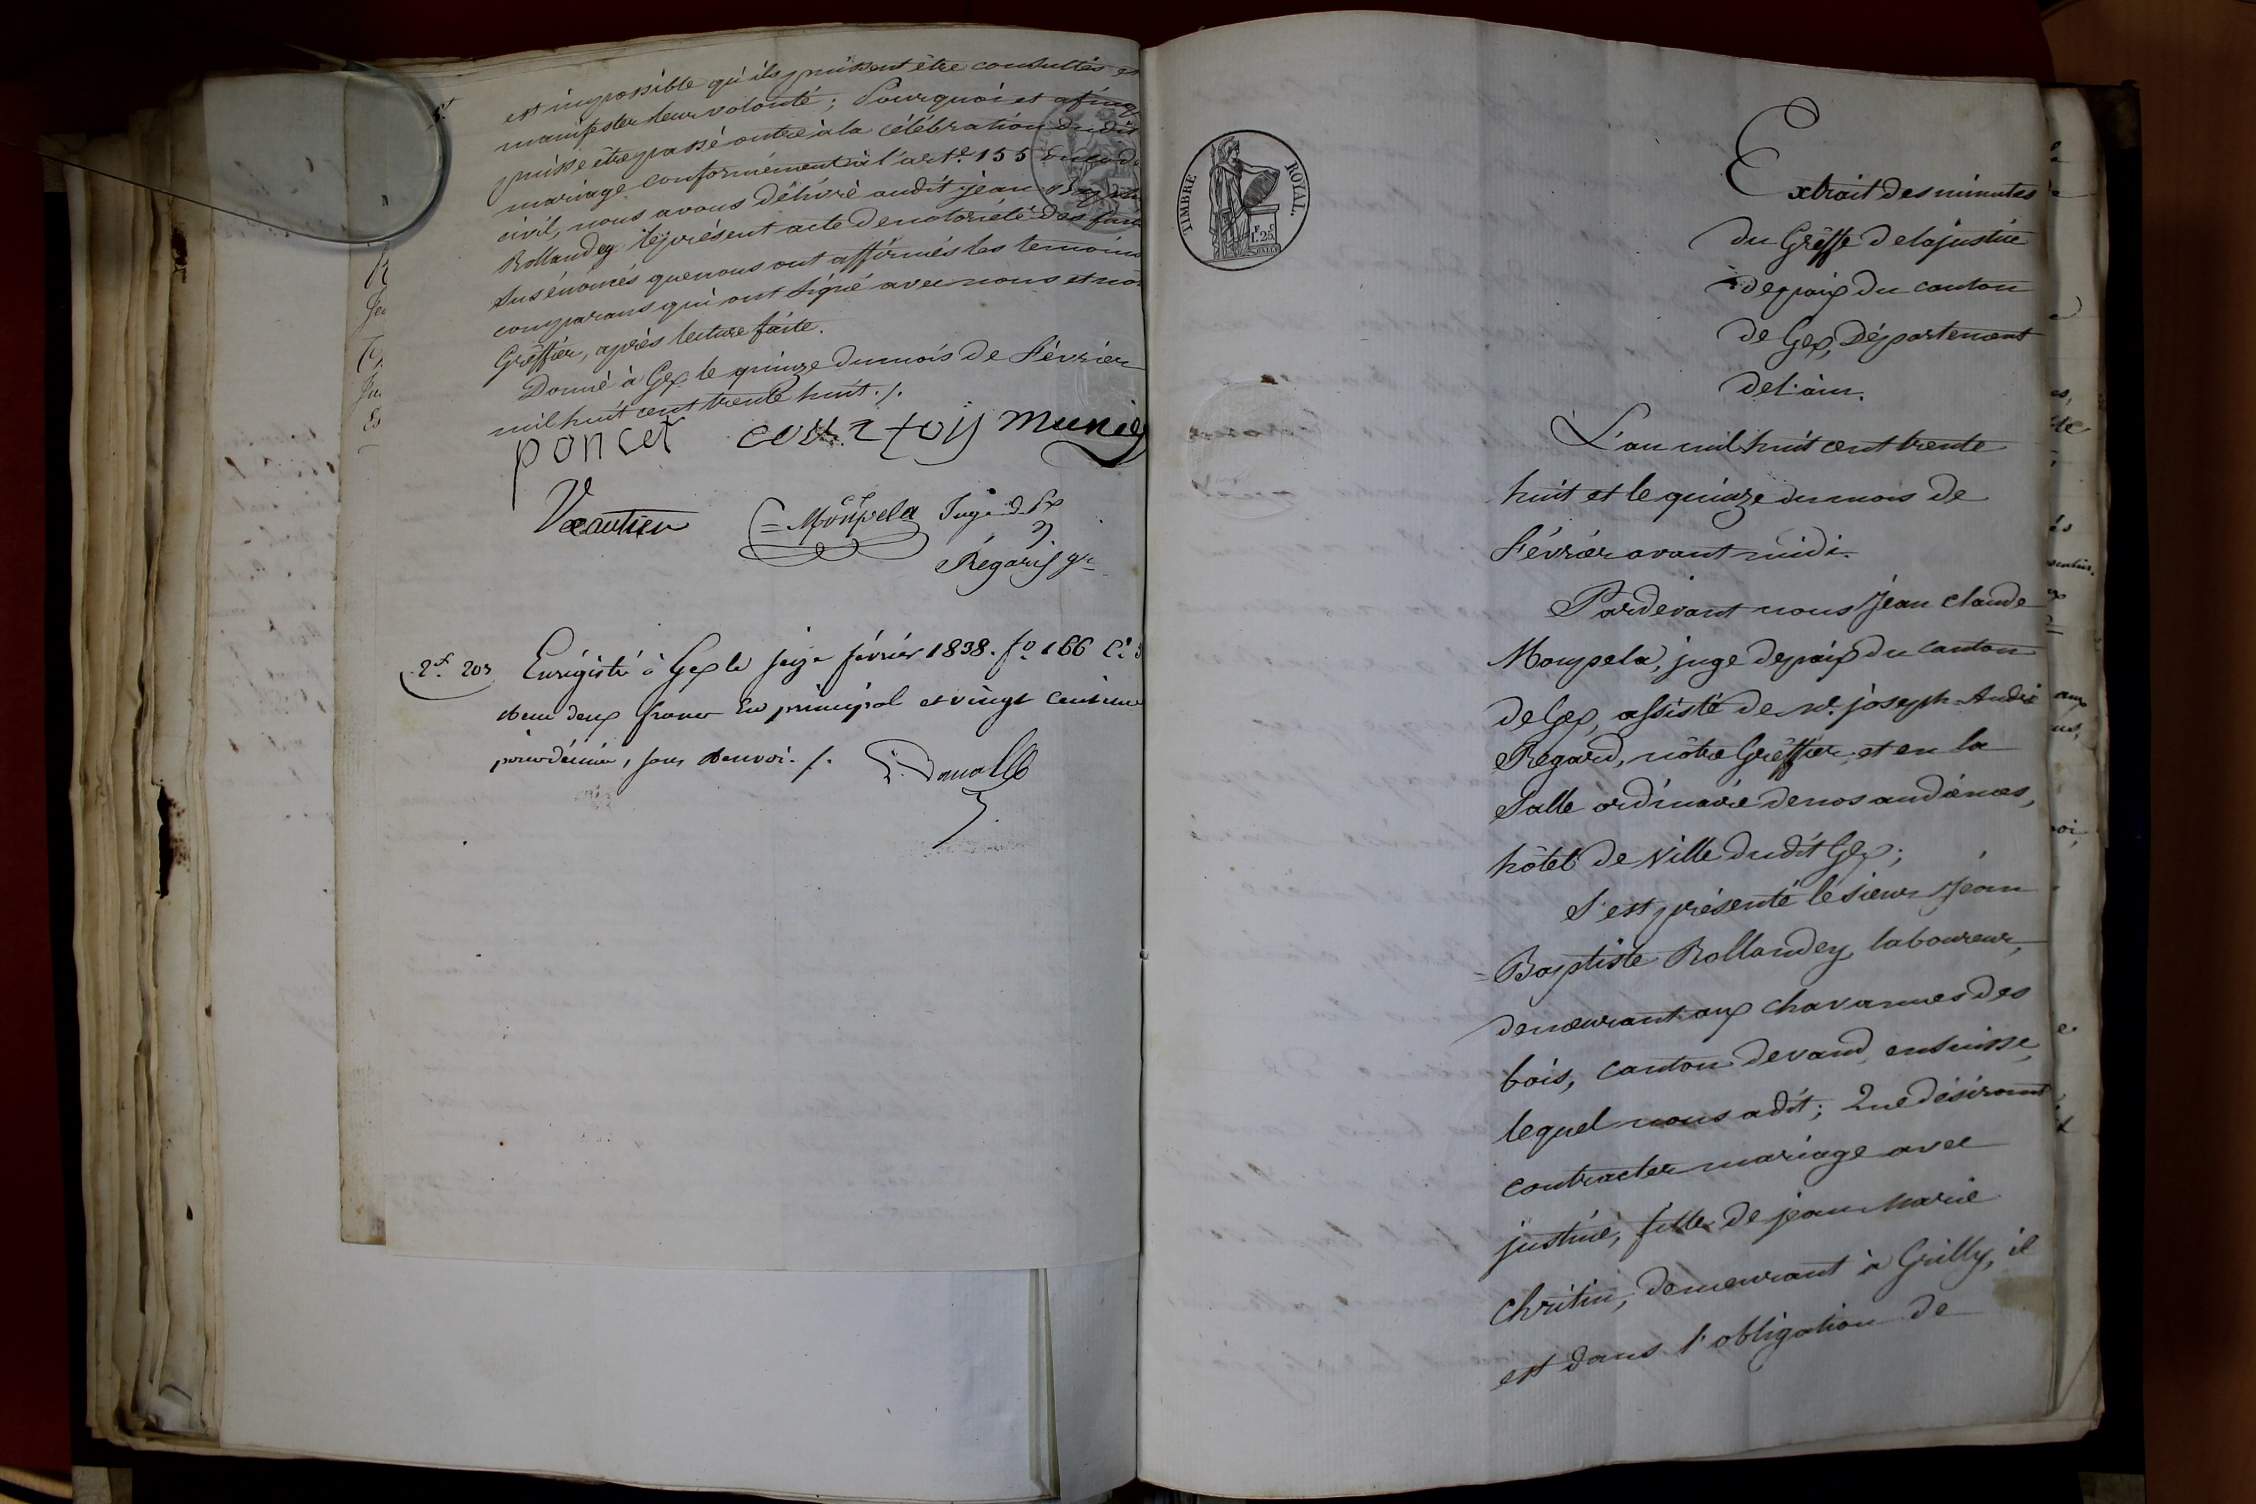 est impossible qu'ils puissent être consultés et
manifester leur volonté; Pourquoi et afin q
puisse être passé outre à la célébration dudit
mariage conformément à l'art.e 155 du code
civil, nous avons délivré audit jean Bap
Rollandey le présent acte de notoriété des faits
susénoncés que nous ont affirmés les temoins
comparans qui ont signé avec nous et no
Gréffier, après lecture faite.
Donné à Gex le quinze du mois de Février
mil huit cent trente huit ./.
poncet courtois munier
Vaautier Moupela Juge de Px
Régard gr
2f. 20c
Enrégistré à Gex le seize février 1838. fo 166
deux francs en principal et vingt centimes
pour décime, sans renvoi ./.
TIMBRE ROYAL.
1f.25c
Extrait des minutes
du Gréffe de la justice
de paix du canton
de Gex, Département
de l'ain.
L'an mil huit cent trente
huit et le quinze du mois de
Février avant midi.
Pardevant nous Jean claude
Moupela, juge de paix du canton
de Gex, assisté de Me. joseph-André
Regard, nôtre Gréffier, et en la
Salle ordinaire de nos audiences,
hôtel de Ville dudit Gex;
S'est présenté le sieur Jean
Baptiste Rollandey, laboureur,
demeurant aux chavannes des
bois, canton de vaud, en suisse,
lequel nous a dit; Que désirant
contracter mariage avec
justine, fille de jean marie
chritin, demeurant à Grilly, il
est dans l'obligation de